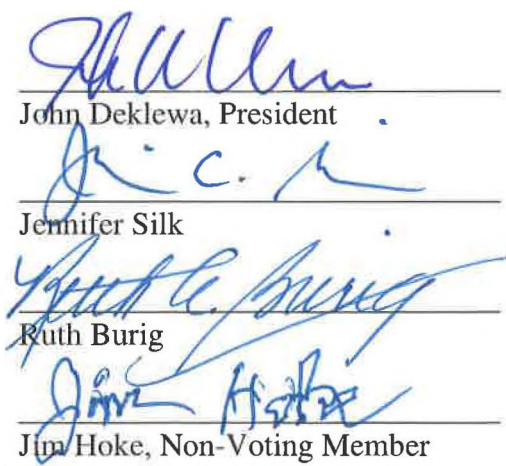 John Deklewa, President
C.
Jennifer Silk
Ruth C. Burig
Ruth Burig
Jim Hoke
Jim Hoke, Non-Voting Member